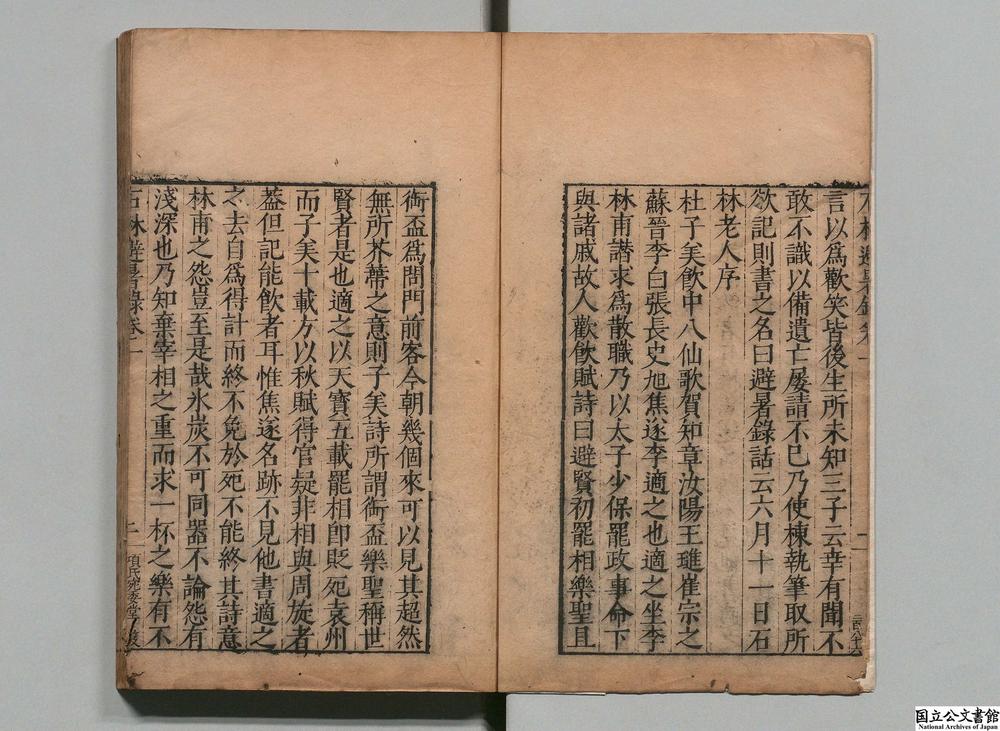 言以爲歡笑皆後生所未知三子云幸有聞不
敢不識以備遺亡屡請不已乃使棟執筆取所
欲記則書之名曰避暑錄話云六月十一日石
林老人序
杜子美飲中八仙歌賀知章汝陽王璡崔宗之
蘇晉李白張長史旭焦遂李適之也適之坐李
林甫譖求爲散職乃以太子少保罷政事命下
與諸戚故人歡飲賦詩曰避賢初罷相樂聖且
銜盃爲問門前客今朝幾個來可以見其超然
無所芥蔕之意則子美詩所謂銜盃樂聖稱世
賢者是也適之以天寳五載罷相卽貶死袁州
而子美十載方以秋賦得官疑非相與周旋者
葢但記能飲者耳惟焦遂名跡不見他書適之
之去自爲得計而終不免於死不能終其詩意
林甫之怨豈至是哉氷炭不可同器不論怨有
淺深也乃知棄宰相之重而求一杯之樂有不
石林避暑錄卷一
二
項氏宛委堂
国立公文書館
National Archives of Japan